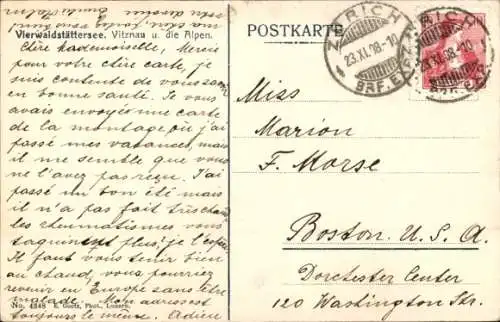 Vierwaldstättersee. Vitznau u. die Alpen.
Chère Mademoiselle, Merci
pour votre chère carte, je
suis contente de vous savoir
en bonne santé. Je vous
avais envoyée une carte
de la montagne où j'ai
passé mes vacances, mais
il me semble que vous
ne l'avez pas reçu. J'ai
passé un bon été mais
il n'a pas fait très chaud
les rheumatismes vous
taquinent plus, je l'espère
Il faut vous tenir bien
au chaud, vous pourriez
revenir en Europe sans être
malade. Mon adresse est
toujours le même. Adieu
No. 4348 E. Goetz, Phot., Luzern.
POSTKARTE
ZÜRICH
23.XI.08-10
BRF. EXP.
ZÜRICH
23.XI.08-10
Miss
Marion
F. Morse
Boston. U. S. A.
Dorchester Center
120 Washington Str.